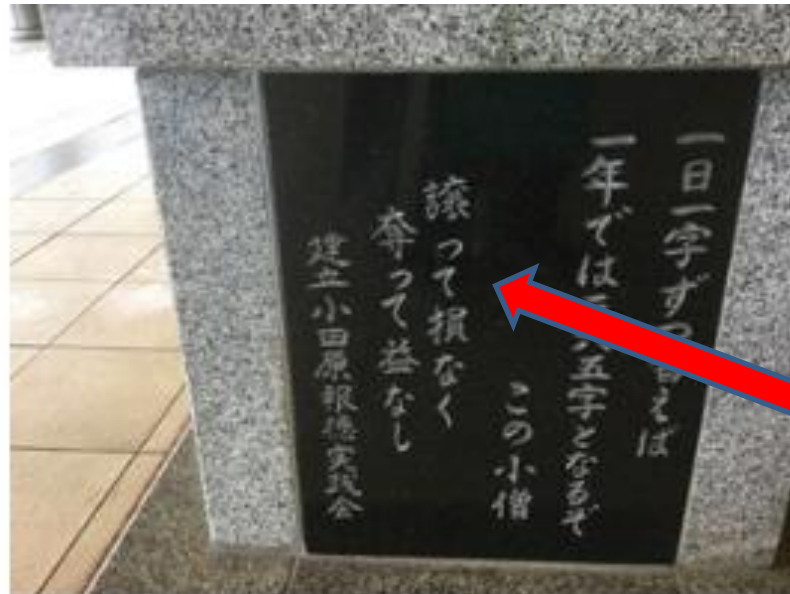 一日一字ずつ習えば
一年では三六五字となるぞ
この小僧
譲って損なく
奪って益なし
建立小田原報徳実践会